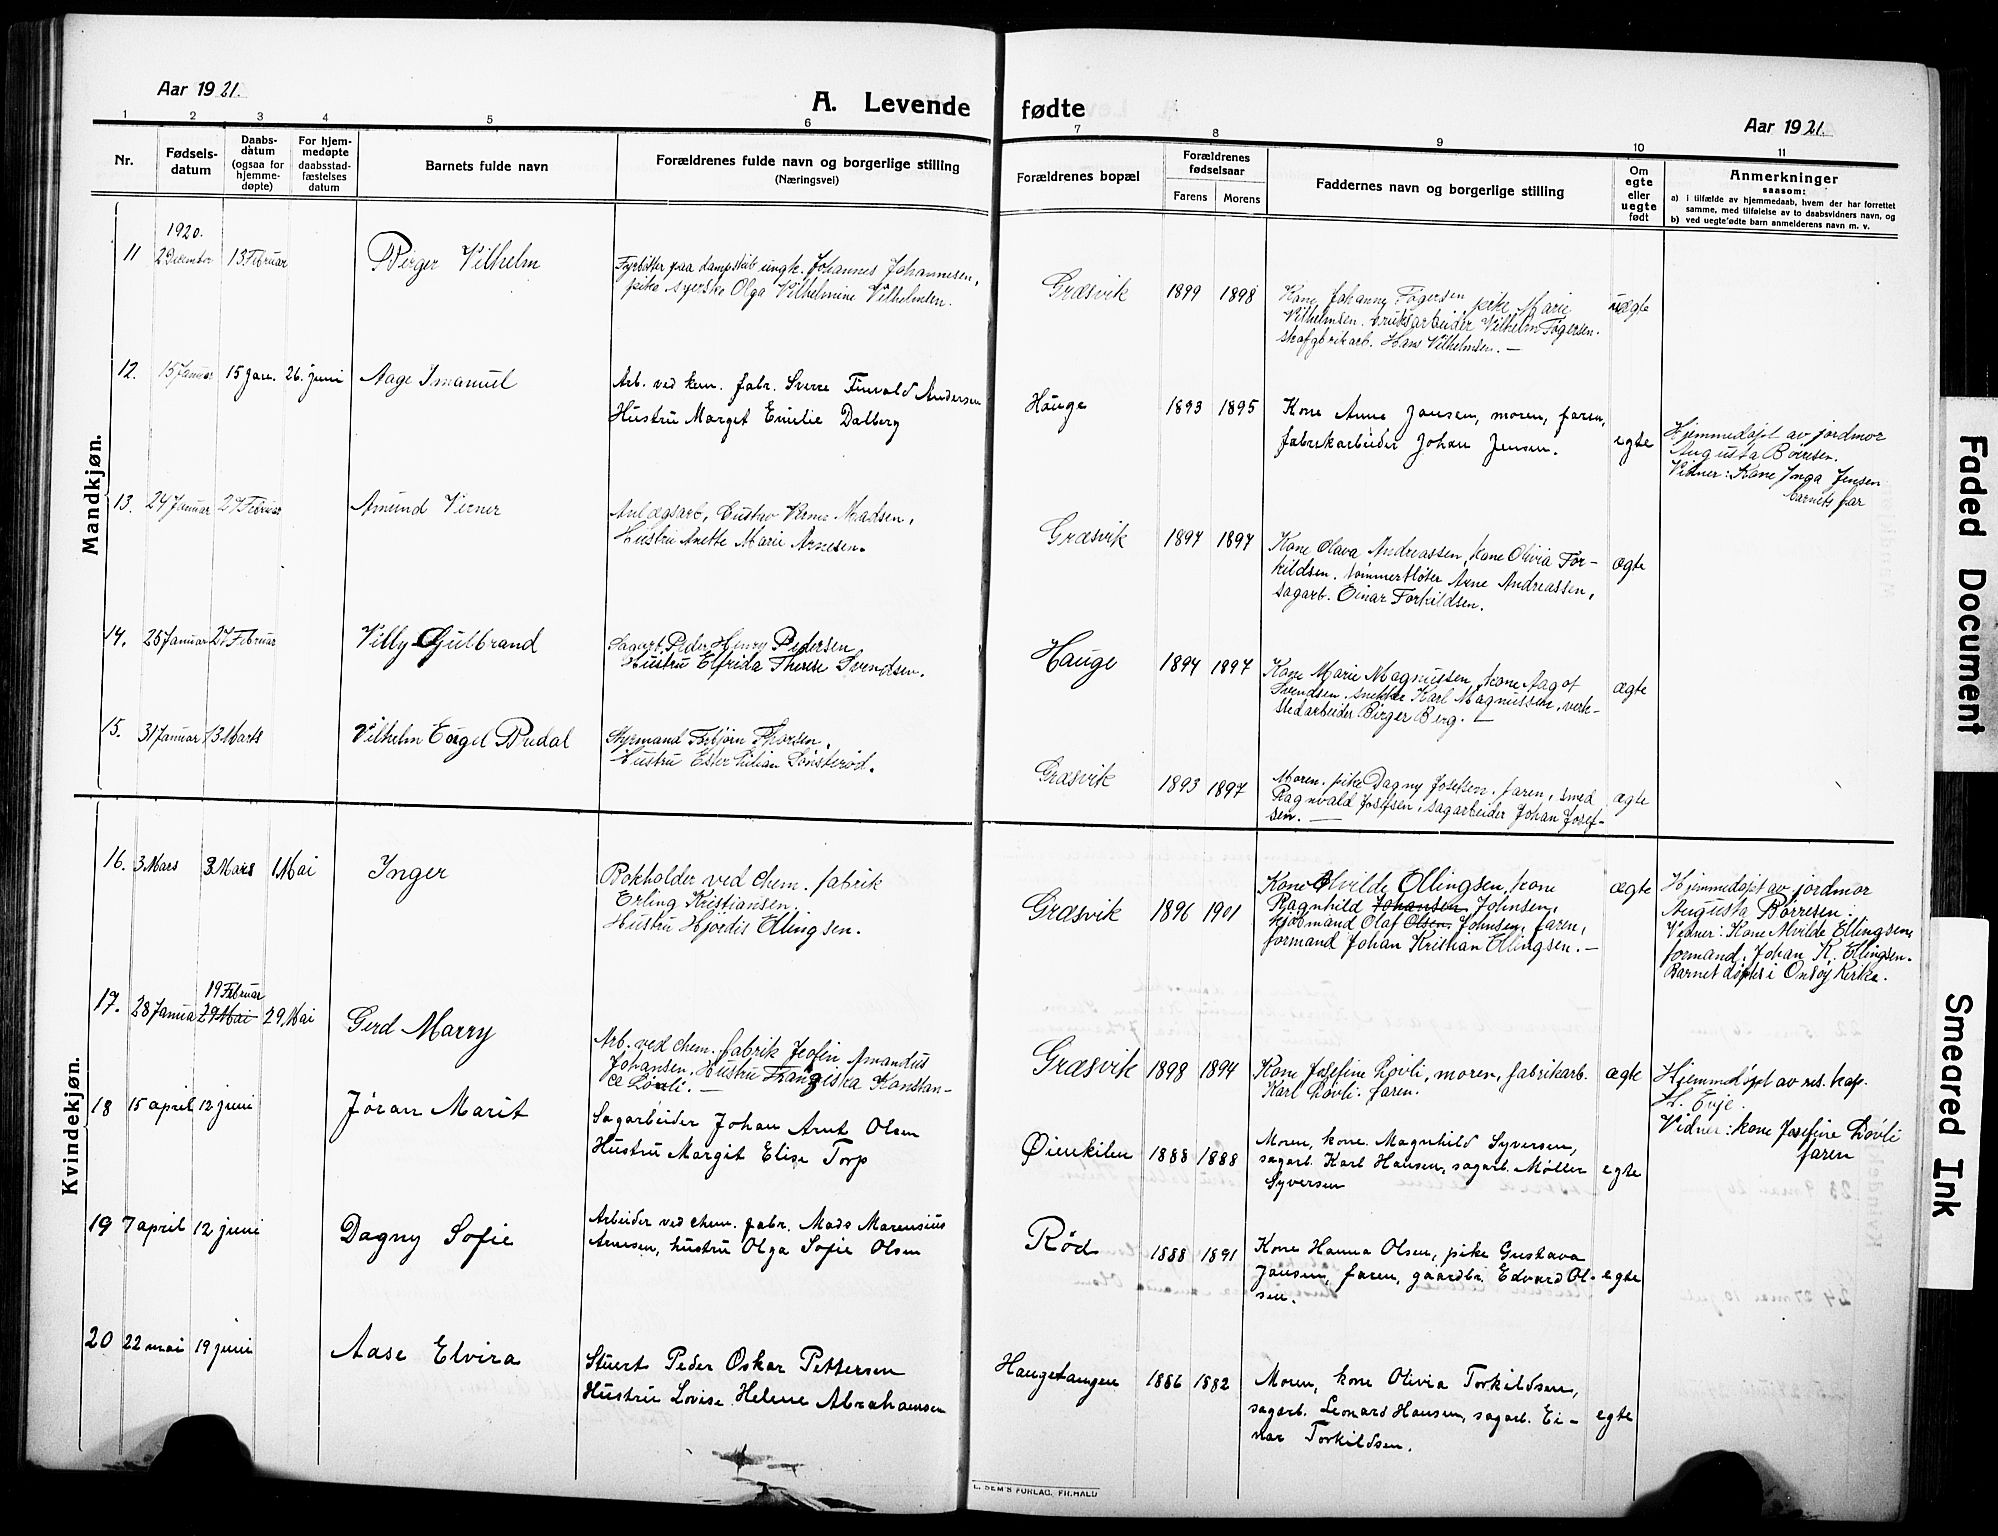 Aar 1921.
A. Levende fødte
Aar 1921.
1 2 3 4 5 6 7 8 9 10 11
Nr.
Fødsels-
datum
Daabs-
datum
(ogsaa for
hjemme-
døpte)
For hjem-
medøpte
daabsstad-
fæstelses
datum
Barnets fulde navn
Forældrenes fulde navn og borgerlige stilling
(Næringsvei)
Forældrenes bopæl
Forældrenes
fødselsaar
Farens Morens
Faddernes navn og borgerlige stilling
Om
egte
eller
uegte
født
Anmerkninger
saasom:
a) i tilfælde av hjemmedaab, hvem der har forrettet
samme, med tilføielse av to daabsvidners navn, og
b) ved uegte fødte barn anmelderens navn m. v.
Mandkjøn.
1920.
11 2 December 13 Februar
Birger Vilhelm
Fyrbøter paa dampskib ungk. Johannes Johannesen,
pike syerske Olga Vilhelmine Vilhelmsen.
Græsvik 1899 1898
Kone Johanne Tøgersen pike Marie
Vilhelmsen. bruksarbeider Vilhelm Tøgersen.
skofabrikarb. Hans Vilhelmsen. —
uægte
12. 15 Januar 15 Jan. 26. juni
Aage Imanuel
Arb. ved kem. fabr. Sverre Finvald Andersen
Hustru Margit Emilie Dalberg
Hauge 1893 1895
Kone Anne Jansen, moren, faren,
fabrikarbeider Johan Jensen.
egte
Hjemmedøpt av jordmor
Augusta Börresen.
Vidner: Kone Inga Jensen
barnets far
13. 24 Januar 27 Februar
Amund Verner
Anlægsarb. Gustav Verner Madsen,
Hustru Anette Marie Arnesen.
Græsvik 1897 1897
Kone Olava Andreassen, kone Olivia Tor-
kildsen. tømmerfløter Arne Andreassen,
sagarb. Einar Torkildsen.
ægte
14. 26 Januar 27 Februar
Villy Gulbrand
Sagarb. Peder Henry Pedersen
Hustru Elfrida Therese Svendsen.
Hauge 1894 1897
Kone Marie Magnussen, kone Aagot
Svendsen. snekker Karl Magnussen, verk-
stedarbeider Birger Berg. —
ægte
15. 31 Januar 13 Marts
Vilhelm Engel Bredal
Styrmand Torbjørn Thorsen.
Hustru Ester Lilian Sønsterød.
Græsvik 1893 1897
Moren. pike Dagny Josefsen. faren, smed
Ragnvald Josefsen, sagarbeider Johan Josef-
sen. —
ægte
Kvindekjøn.
16. 3 Mars 3 Mars 1 Mai
Inger
Bokholder ved chem. fabrik
Erling Kristiansen.
Hustru Hjørdis Ellingsen.
Græsvik 1896 1901
Kone Alvilde Ellingsen, kone
Ragnhild Johansen Johnsen,
kjøbmand Olaf Olsen Johnsen, faren,
formand Johan Kristian Ellingsen. —
ægte
Hjemmedøpt av jordmor
Augusta Börresen:
Vidner: Kone Alvilde Ellingsen,
formand, Johan K. Ellingsen.
Barnet døptes i Onsøy Kirke.
19 Februar
17. 28 Januar 29 Mai 29 Mai
Gerd Marry
Arb. ved chem. fabrik Jeofin Amandus
Johansen. Hustru Franziska Konstan-
ce Løvli. —
Græsvik 1898 1894
Kone Josefine Løvli, moren, fabrikarb.
Karl Løvli. faren.
ægte
Hjemmedøpt av res. kap.
H. Evje.
Vidner: kone Josefine Løvli
faren
18 15 april 12 juni
Jøran Marit
Sagarbeider Johan Arnt Olsen
Hustru Margit Elise Torp
Øienkilen 1888 1888
Moren, kone Magnhild Syversen,
sagarb. Karl Hansen, sagarb. Møller
Syversen
egte
19 7 april 12 juni
Dagny Sofie
Arbeider ved chem. fabr. Mads Marensius
Arnesen, hustru Olga Sofie Olsen
Rød 1888 1891
Kone Hanna Olsen, pike Gustava
Jansen, faren, gaardbr. Edvard Ol-
sen.
egte
20 22 mai 19 juni
Aase Elvira
Stuert Peder Oskar Pettersen
Hustru Lovise Helene Abrahamsen
Haugetangen 1886 1882
Moren, kone Olivia Torkildsen,
sagarb. Leonard Hansen, sagarb. Ei-
nar Torkildsen.
egte
E. SEM'S FORLAG, FR.HALD
Faded Document
Smeared Ink